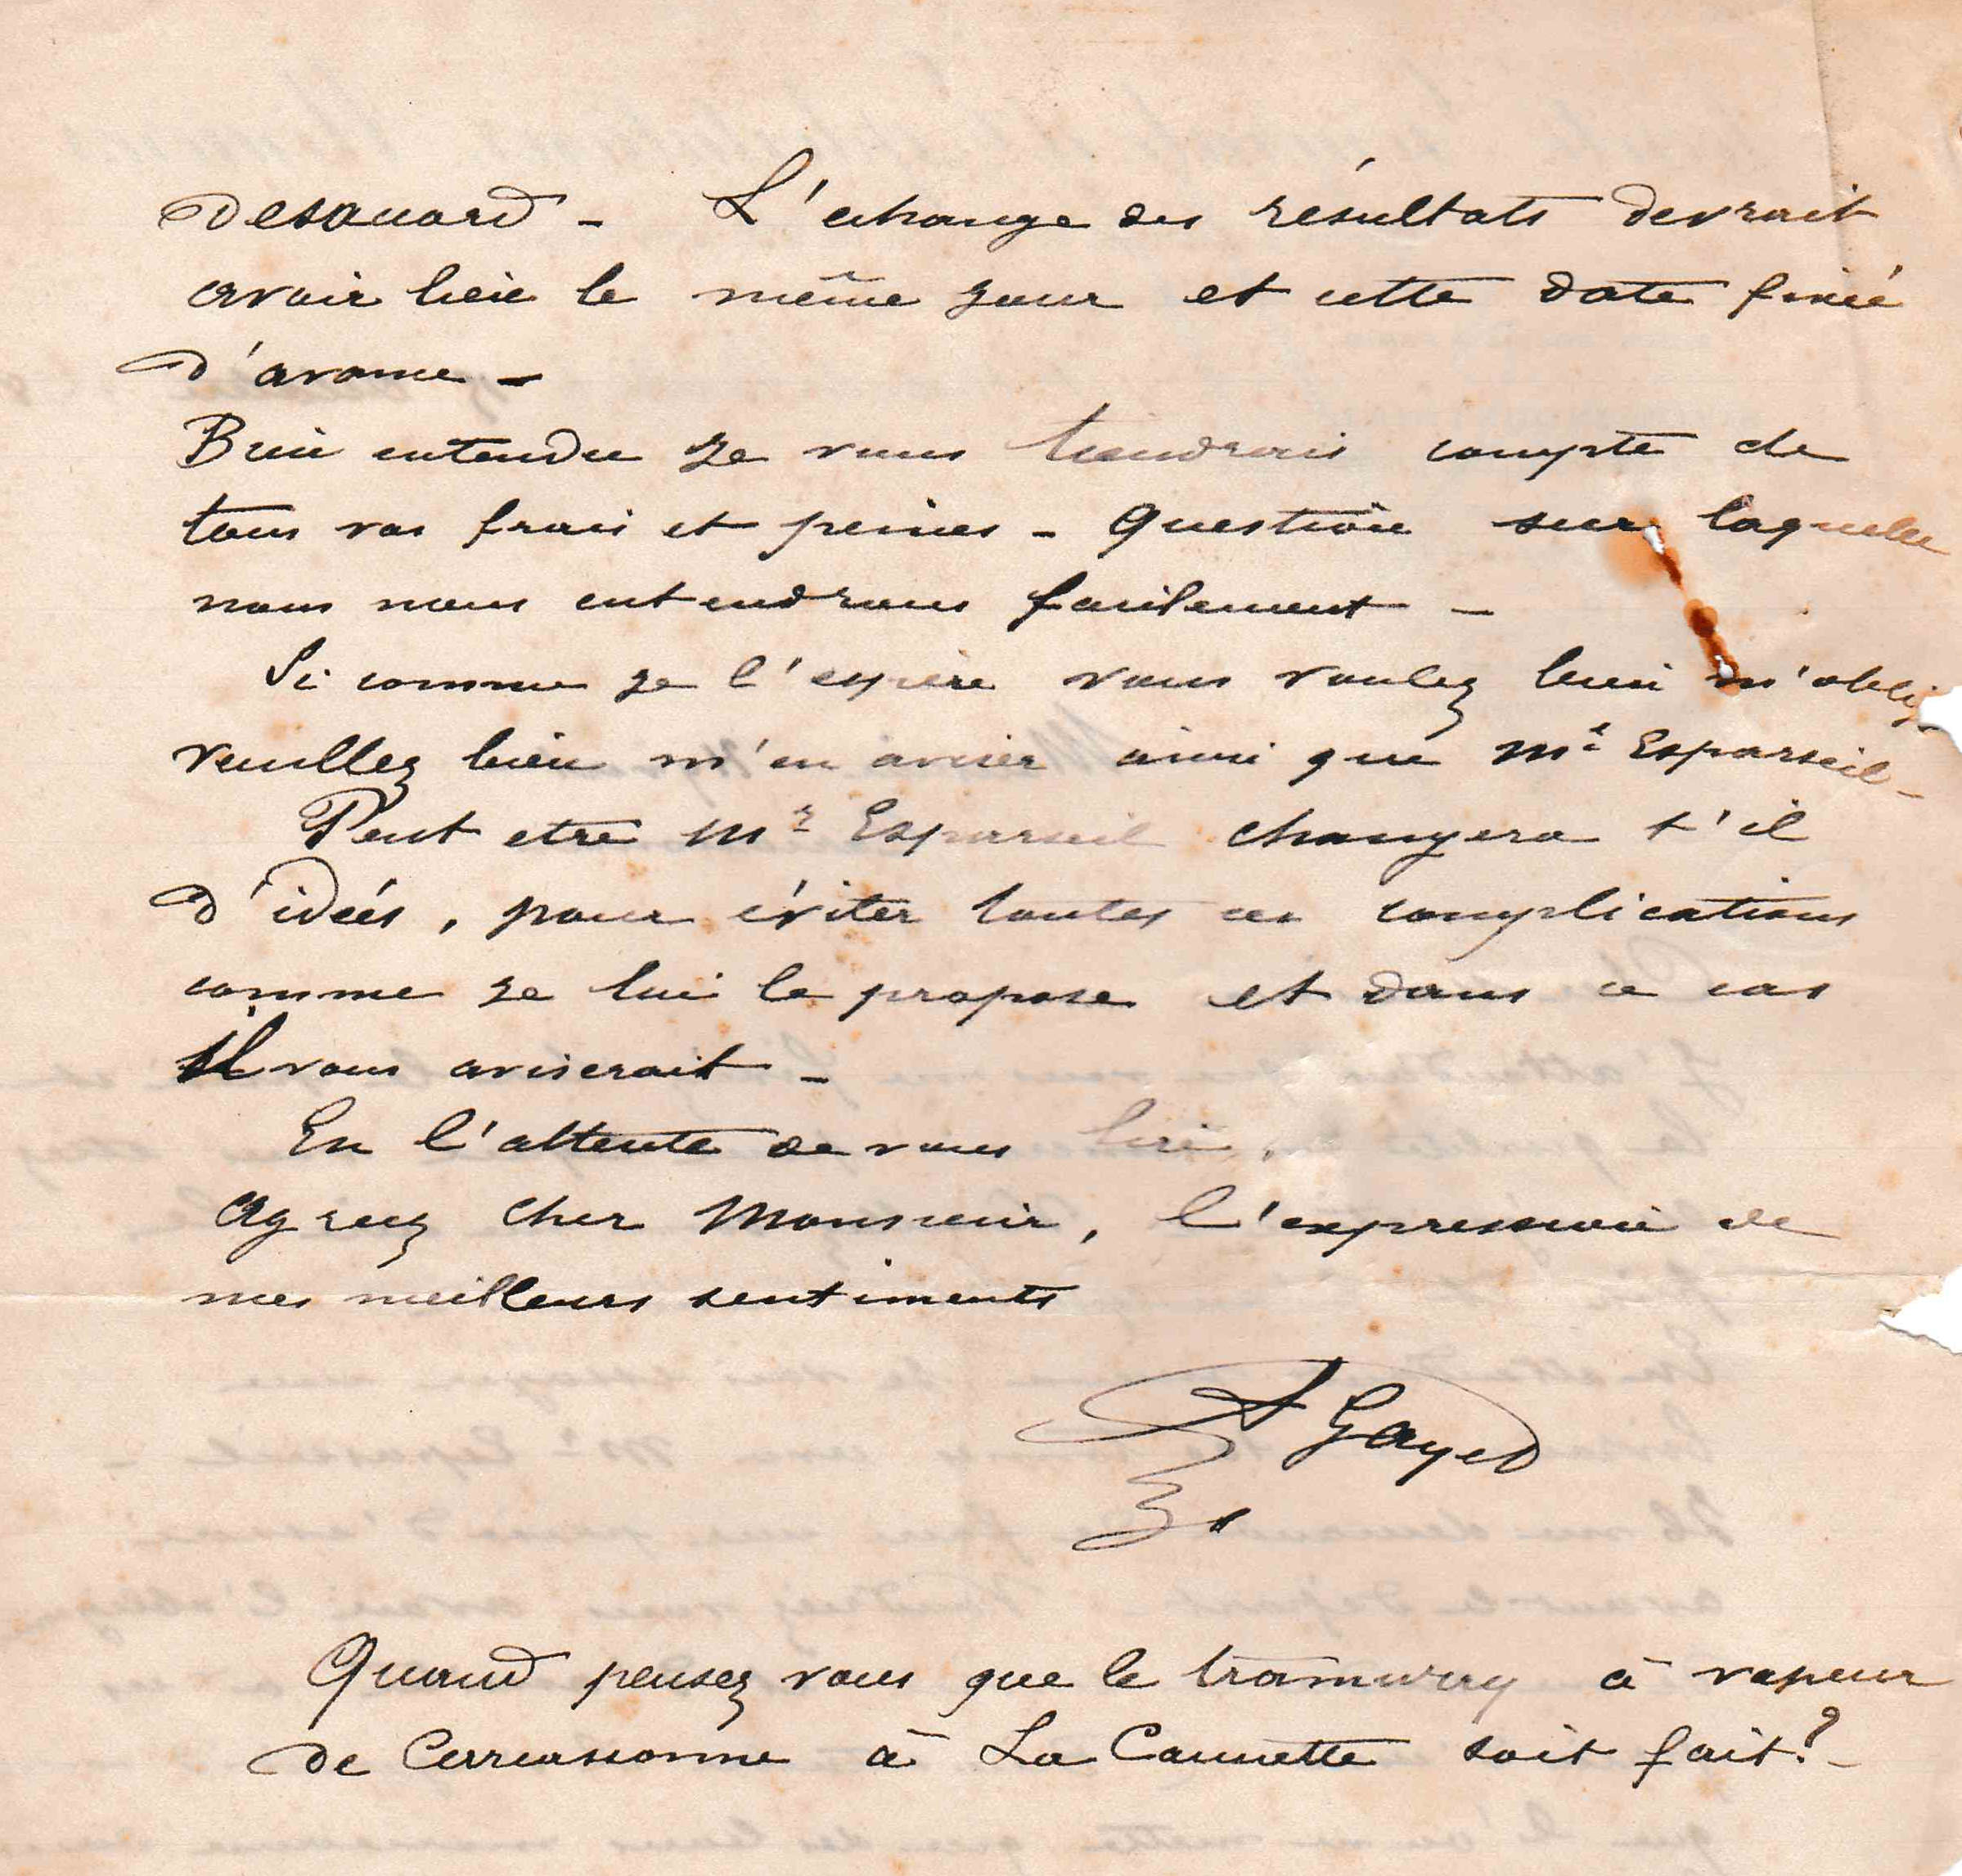 desaccord - L'échange des résultats devrait
avoir lieu le même jour et cette date fixée
d'avance -
Bien entendu je vous tiendrais compte de
tous vos frais et peines - Question sur laquelle
nous nous entendrons facilement -
Si comme je l'espère vous voulez bien m'oblig
veuillez bien m'en aviser ainsi que Mr Esparseil -
Peut etre Mr Esparseil changera t'il
d'idées, pour éviter toutes ces complications
comme je lui le propose et dans ce cas
Il vous aviserait -
En l'attente de vous lire,
Agréez cher Monsieur, l'expression de
mes meilleurs sentiments
A Gayed
Quand pensez vous que le tramway à vapeur
de Carcassonne à La Caunette soit fait? -